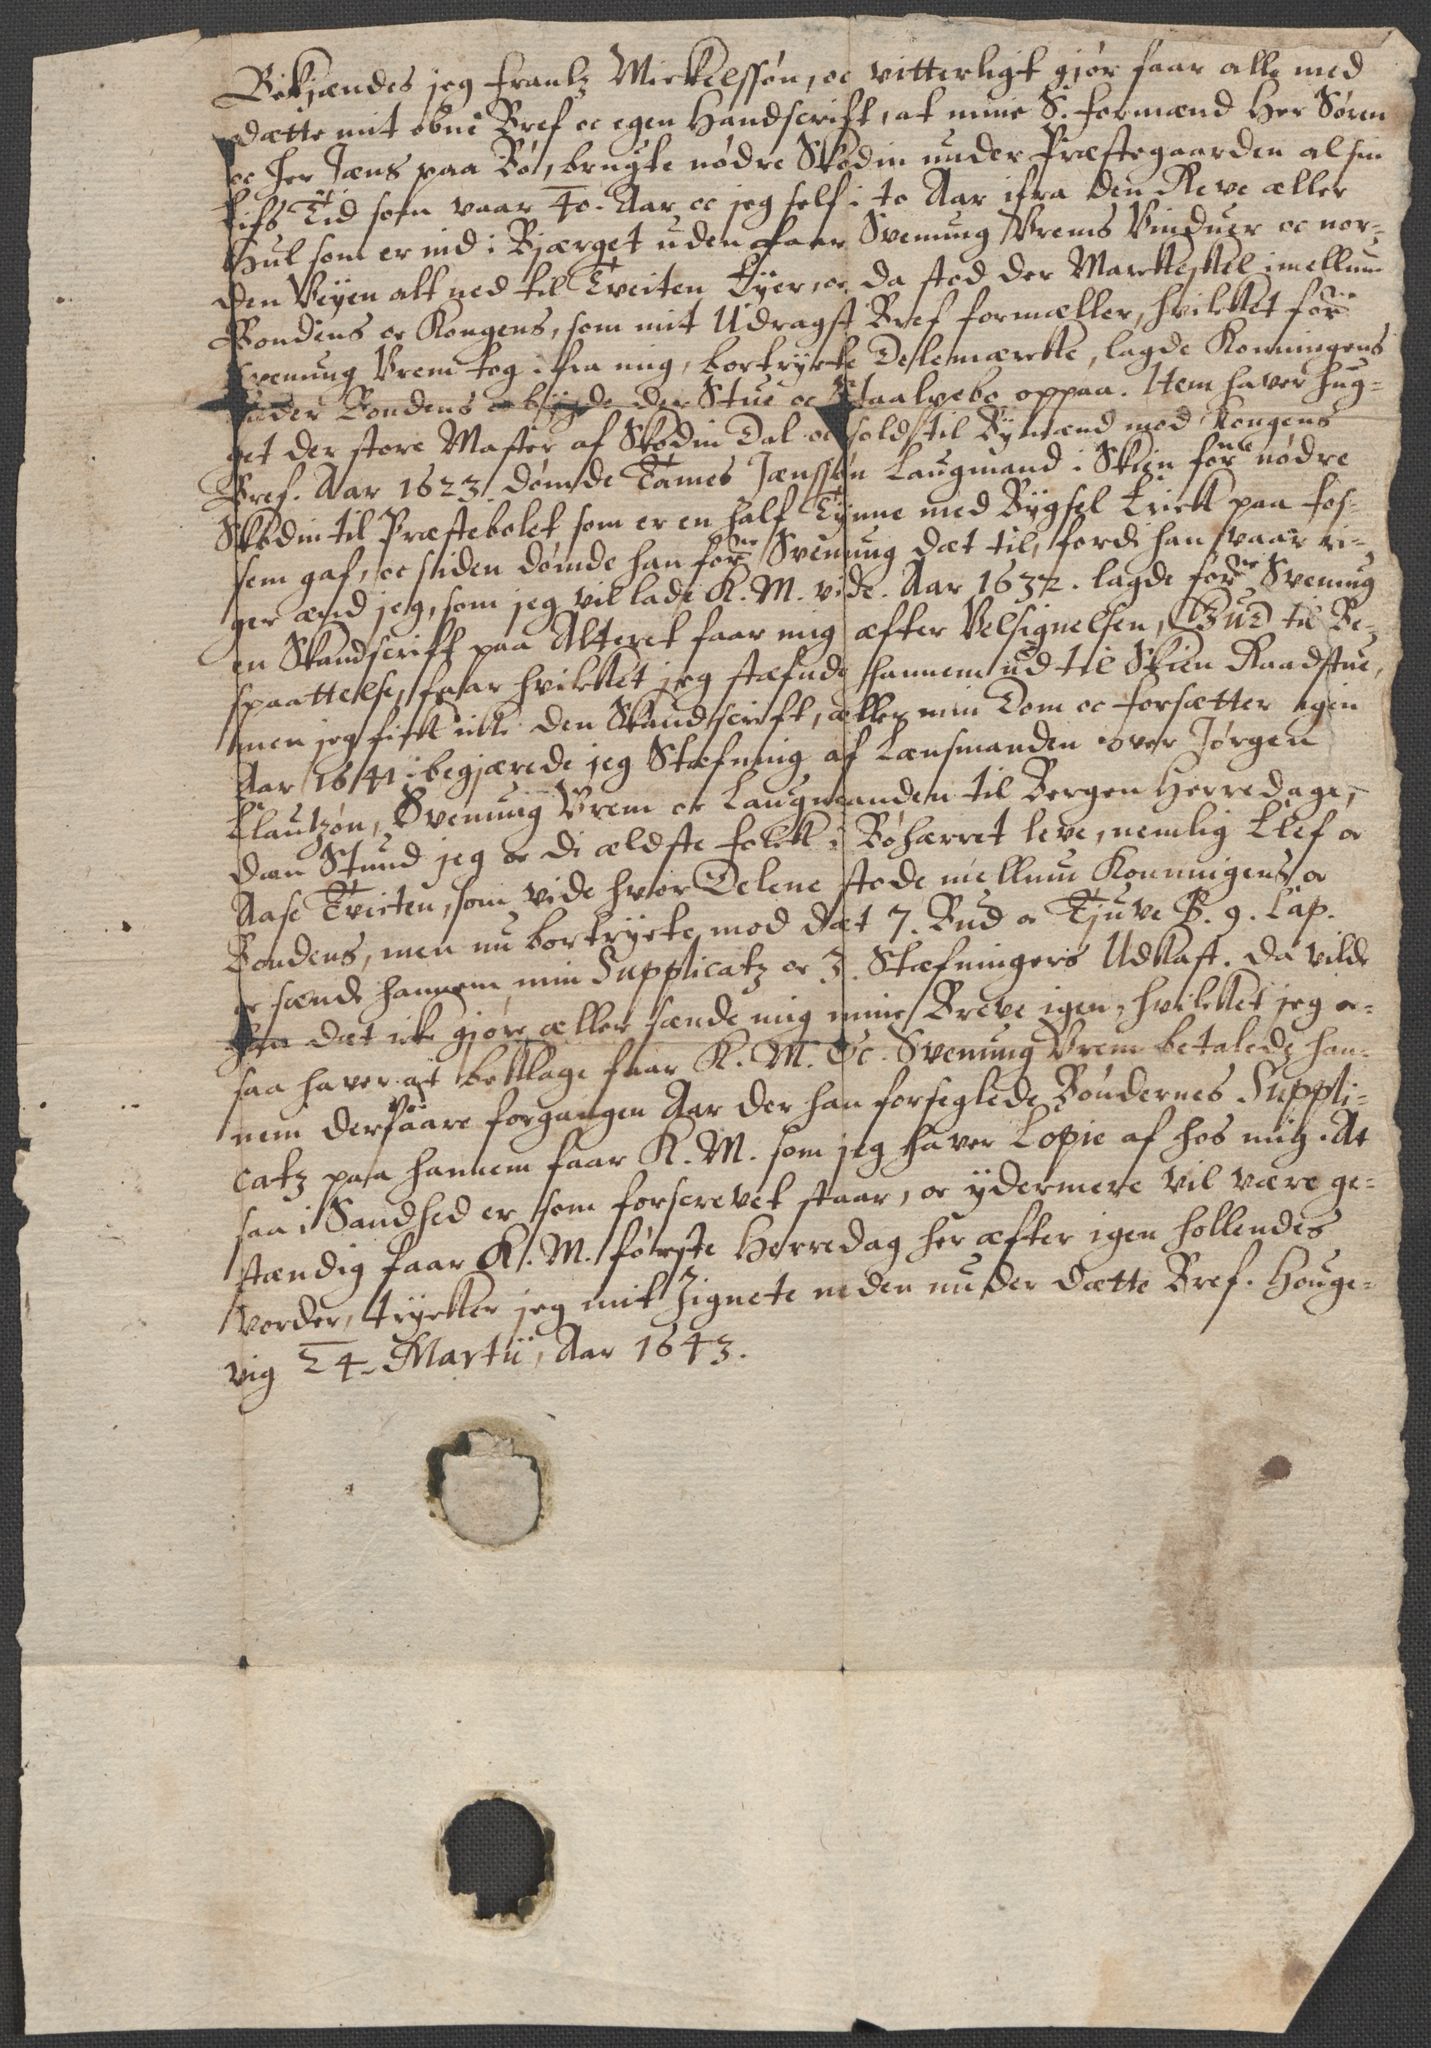 Bekjændes jeg Frantz Mickelssøn, oc vitterligt gjør faar alle med
dætte mit obne Bref oc egen Handscrift, at mine S. Formænd Her Søren
oc Her Jæns paa Bø, brugte nødre Skodin under Præstegaarden al sin
Lifs Tid som vaar 40. Aar oc jeg self i to Aar ifra den Reve æller
Hul som er ind i Bjærget uden faar Svenung Vrems Vinduer oc nor-
den Veyen alt ned til Tveiten Tyer, oc da stod der Marckeskel imellum
Bondens oc Kongens, som mit Udragst Bref formæller, hvilkket forne
Svenung Vrem tog ifra mig, bortryckte Delemærkke, lagde Konningens
under Bondens oc bygde der Stue oc Staalvebo oppaa. Item haver hug-
get der store Master af Skodin Dal oc sold til Bymænd mod Kongens
Bref. Aar 1623 dømde Tames Jænssøn Laugmand i Skien forne nødre
Skodin til Præstebolet som er en half Tynne med Bygsel Frickk paa Fos-
sem gaf, oc siden dømde han forne Svenung dæt til, fordi han vaar ri-
ger ænd jeg, som jeg vil lade K. M. vide. Aar 1632. lagde forne Svenung
en Skandscrift paa Alteret faar mig æfter Velsignelsen, Gud til Be-
spaattelse, faar hvilkket jeg stæfnde hannem ud til Skien Raadstue,
men jeg fickk ickke den Skandscrift, æller min Dom oc Forsætter igen
Aar 1641 begjærede jeg Stæfning af Lænsmanden over Jørgen
Clautzøn, Svenung Vrem oc Laugmanden til Bergen Herredage,
dæn Stund jeg oc di ældste Folckk i Bøhærret leve, nemlig Elef oc
Aase Tveiten, som vide hvor Delene stode mellum Konningens oc
Bondens, men nu bortryckte, mod dæt 7. Bud oc Tjuve B. 9. Cap.
oc sænde hannem min Supplicatz oc 3. Stæfningers Udkast. Da vilde
han dæt icke gjøre æller sænde mig mine Breve igen, hvilkket jeg oc-
saa haver at beklage faar K. M. Oc Svenung Vrem betalede han-
nem derfaare forgangen Aar der han forseglede Bøndernes Suppli-
catz paa hannem faar K. M. som jeg haver Copie af hos mig. At
saa i Sandhed er som forscrevet staar, oc ydermere vil være ge-
stændig faar K. M. første Herredag her æfter igen hollendes
vorder, tryckker jeg mit Zignete neden under dætte Bref. Houge-
vig 24. Martii, Aar 1643.